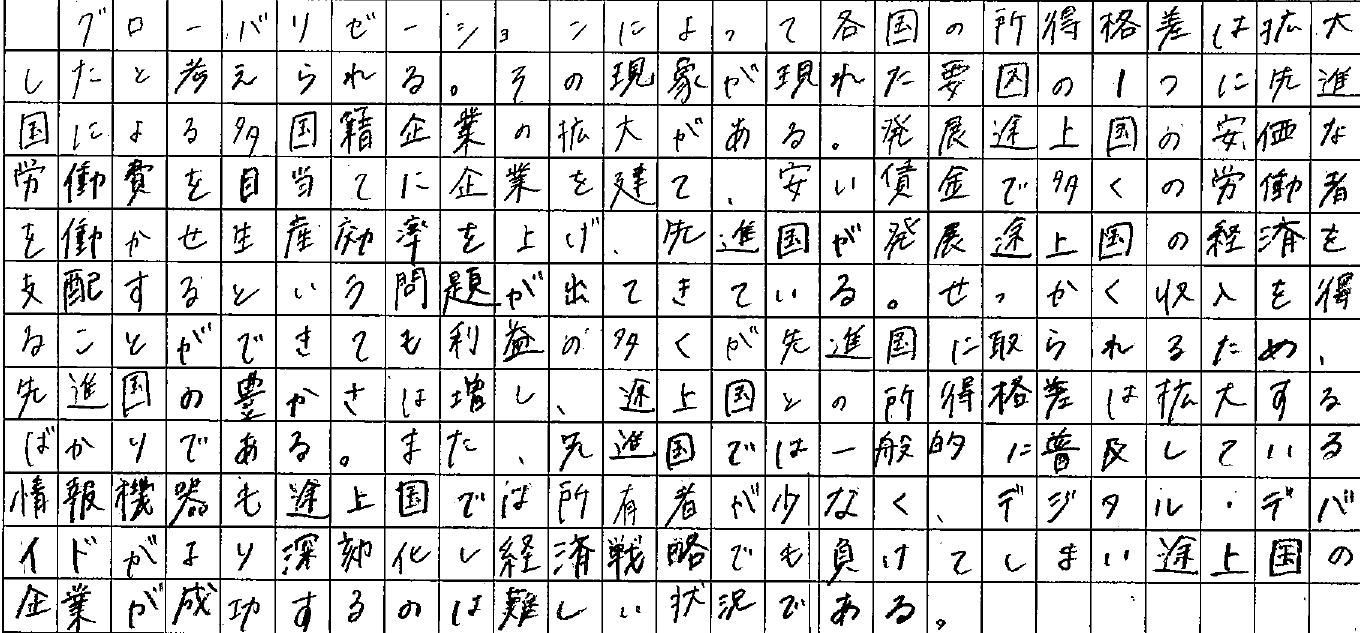 グローバリゼーションによって各国の所得格差は拡大
したと考えられる。その現象が現れた要因の1つに先進
国による多国籍企業の拡大がある。発展途上国の安価な
労働費を目当てに企業を建て、安い賃金で多くの労働者
を働かせ生産効率を上げ、先進国が発展途上国の経済を
支配するという問題が出てきている。せっかく収入を得
ることができても利益の多くが先進国に取られるため、
先進国の豊かさは増し、途上国との所得格差は拡大する
ばかりである。また、先進国では一般的に普及している
情報機器も途上国では所有者が少なく、デジタル・デバ
イドがより深刻化し経済戦略でも負けてしまい途上国の
企業が成功するのは難しい状況である。